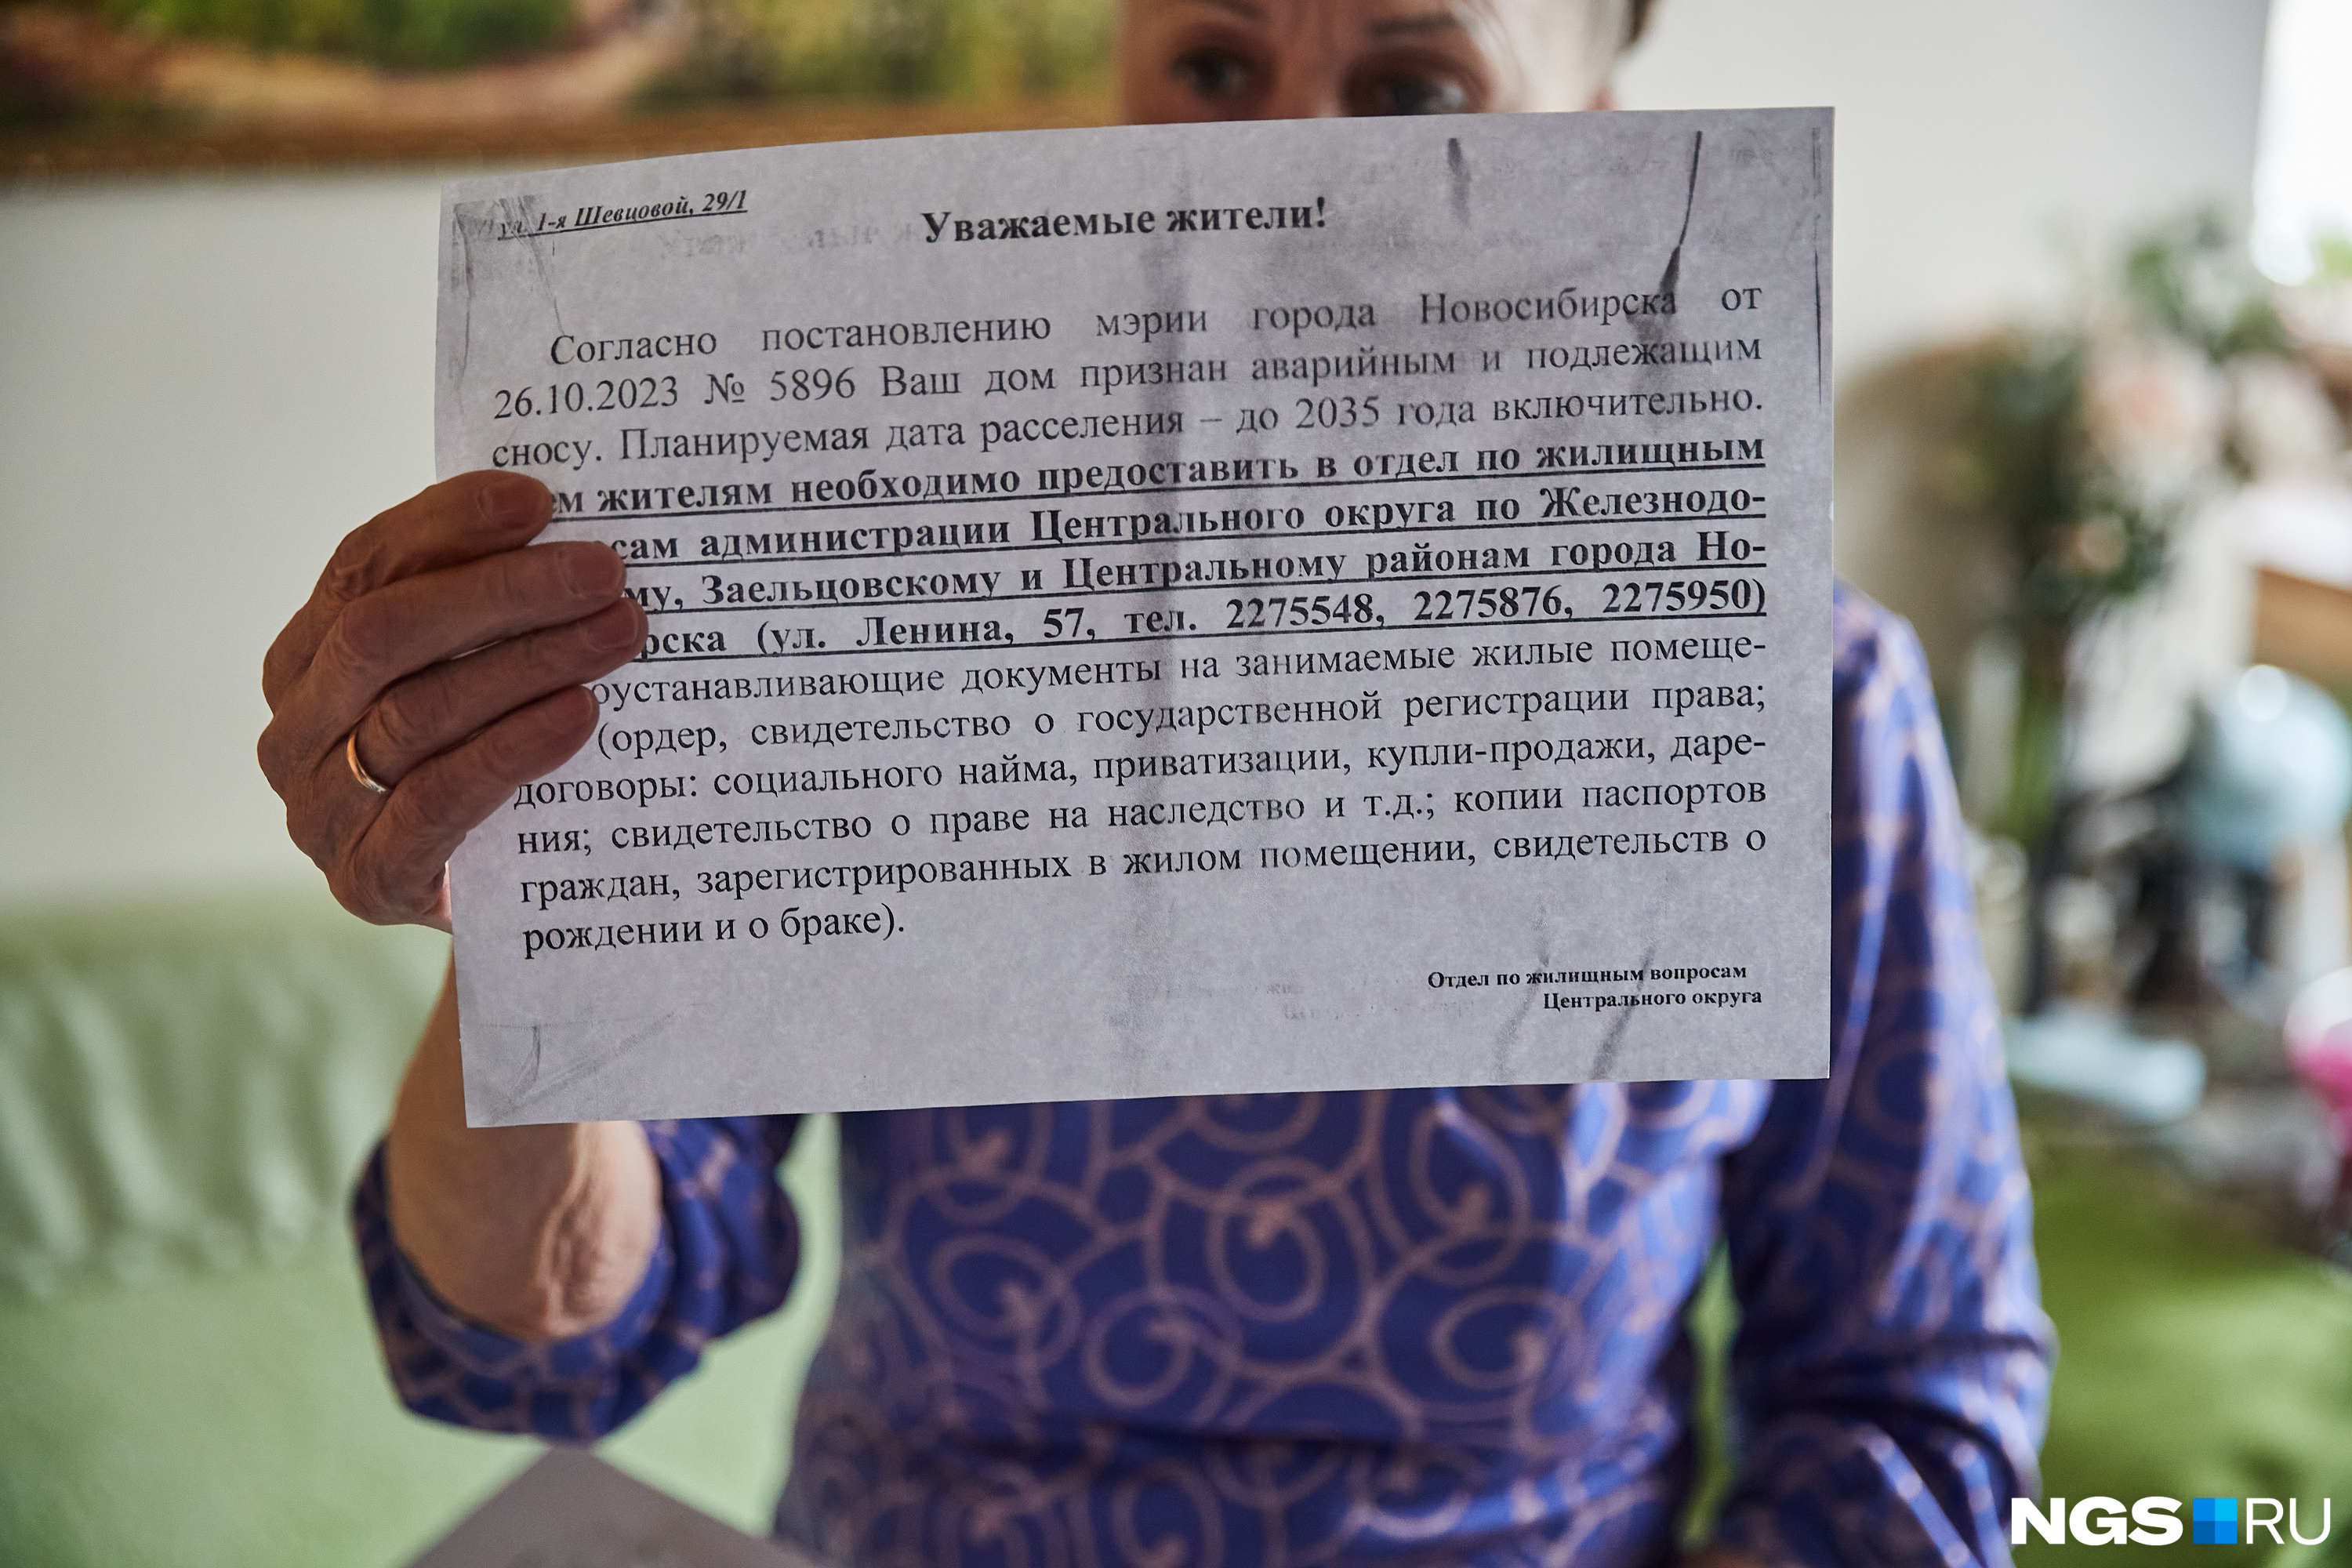 ул. 1-я Шевцовой, 29/1
Уважаемые жители!
Согласно постановлению мэрии города Новосибирска от
26.10.2023 № 5896 Ваш дом признан аварийным и подлежащим
сносу. Планируемая дата расселения – до 2035 года включительно.
ем жителям необходимо предоставить в отдел по жилищным
сам администрации Центрального округа по Железнодо-
му, Заельцовскому и Центральному районам города Но-
рска (ул. Ленина, 57, тел. 2275548, 2275876, 2275950)
оустанавливающие документы на занимаемые жилые помеще-
(ордер, свидетельство о государственной регистрации права;
договоры: социального найма, приватизации, купли-продажи, даре-
ния; свидетельство о праве на наследство и т.д.; копии паспортов
граждан, зарегистрированных в жилом помещении, свидетельств о
рождении и о браке).
Отдел по жилищным вопросам
Центрального округа
NGS RU